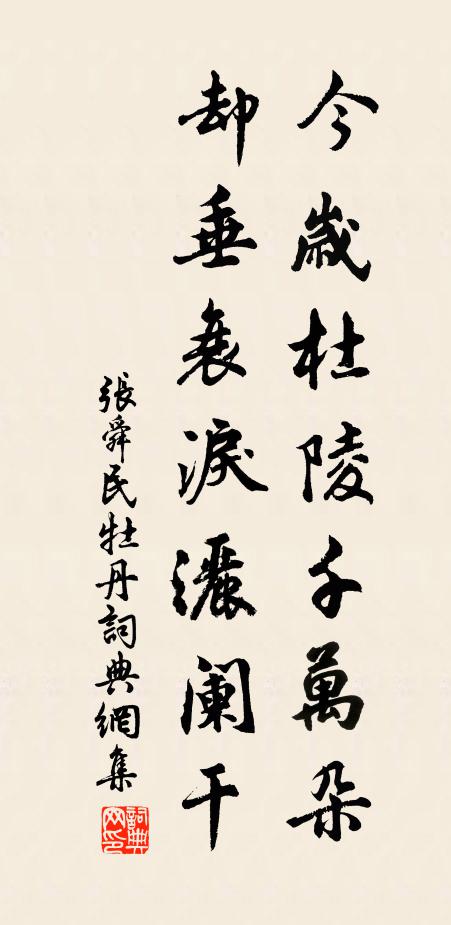 今歲杜陵千萬朵
却垂衰淚灑闌干
張舜民牡丹詞典網集
詞典网印